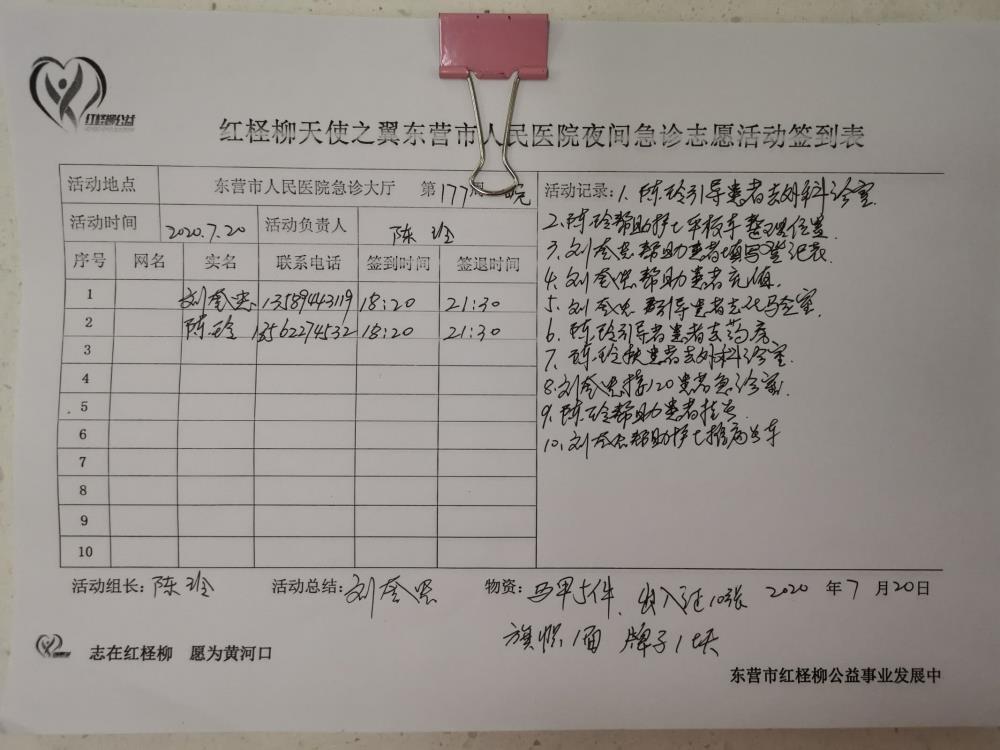 红柽柳公益
红柽柳天使之翼东营市人民医院夜间急诊志愿活动签到表
活动地点 东营市人民医院急诊大厅 第177周 晚
活动时间 2020.7.20 活动负责人 陈玲
序号 网名 实名 联系电话 签到时间 签退时间
1 刘奎忠 13589443119 18:20 21:30
2 陈玲 13562274532 18:20 21:30
3
4
5
6
7
8
9
10
活动记录:1、陈玲引导患者去外科诊室.
2、陈玲帮助护士平板车整理位置
3、刘奎忠帮助患者填写登记表.
4、刘奎忠帮助患者充值.
5、刘奎忠引导患者去化验室.
6、陈玲引导者患者去药房
7、陈玲扶患者去外科诊室.
8、刘奎忠接120患者急诊室.
9、陈玲帮助患者挂号.
10、刘奎忠帮助护士推病号车
活动组长:陈玲 活动总结:刘奎忠 物资:马甲5件、出入证10张 2020年7月20日
旗帜1面 牌子1块
志在红柽柳 愿为黄河口
东营市红柽柳公益事业发展中